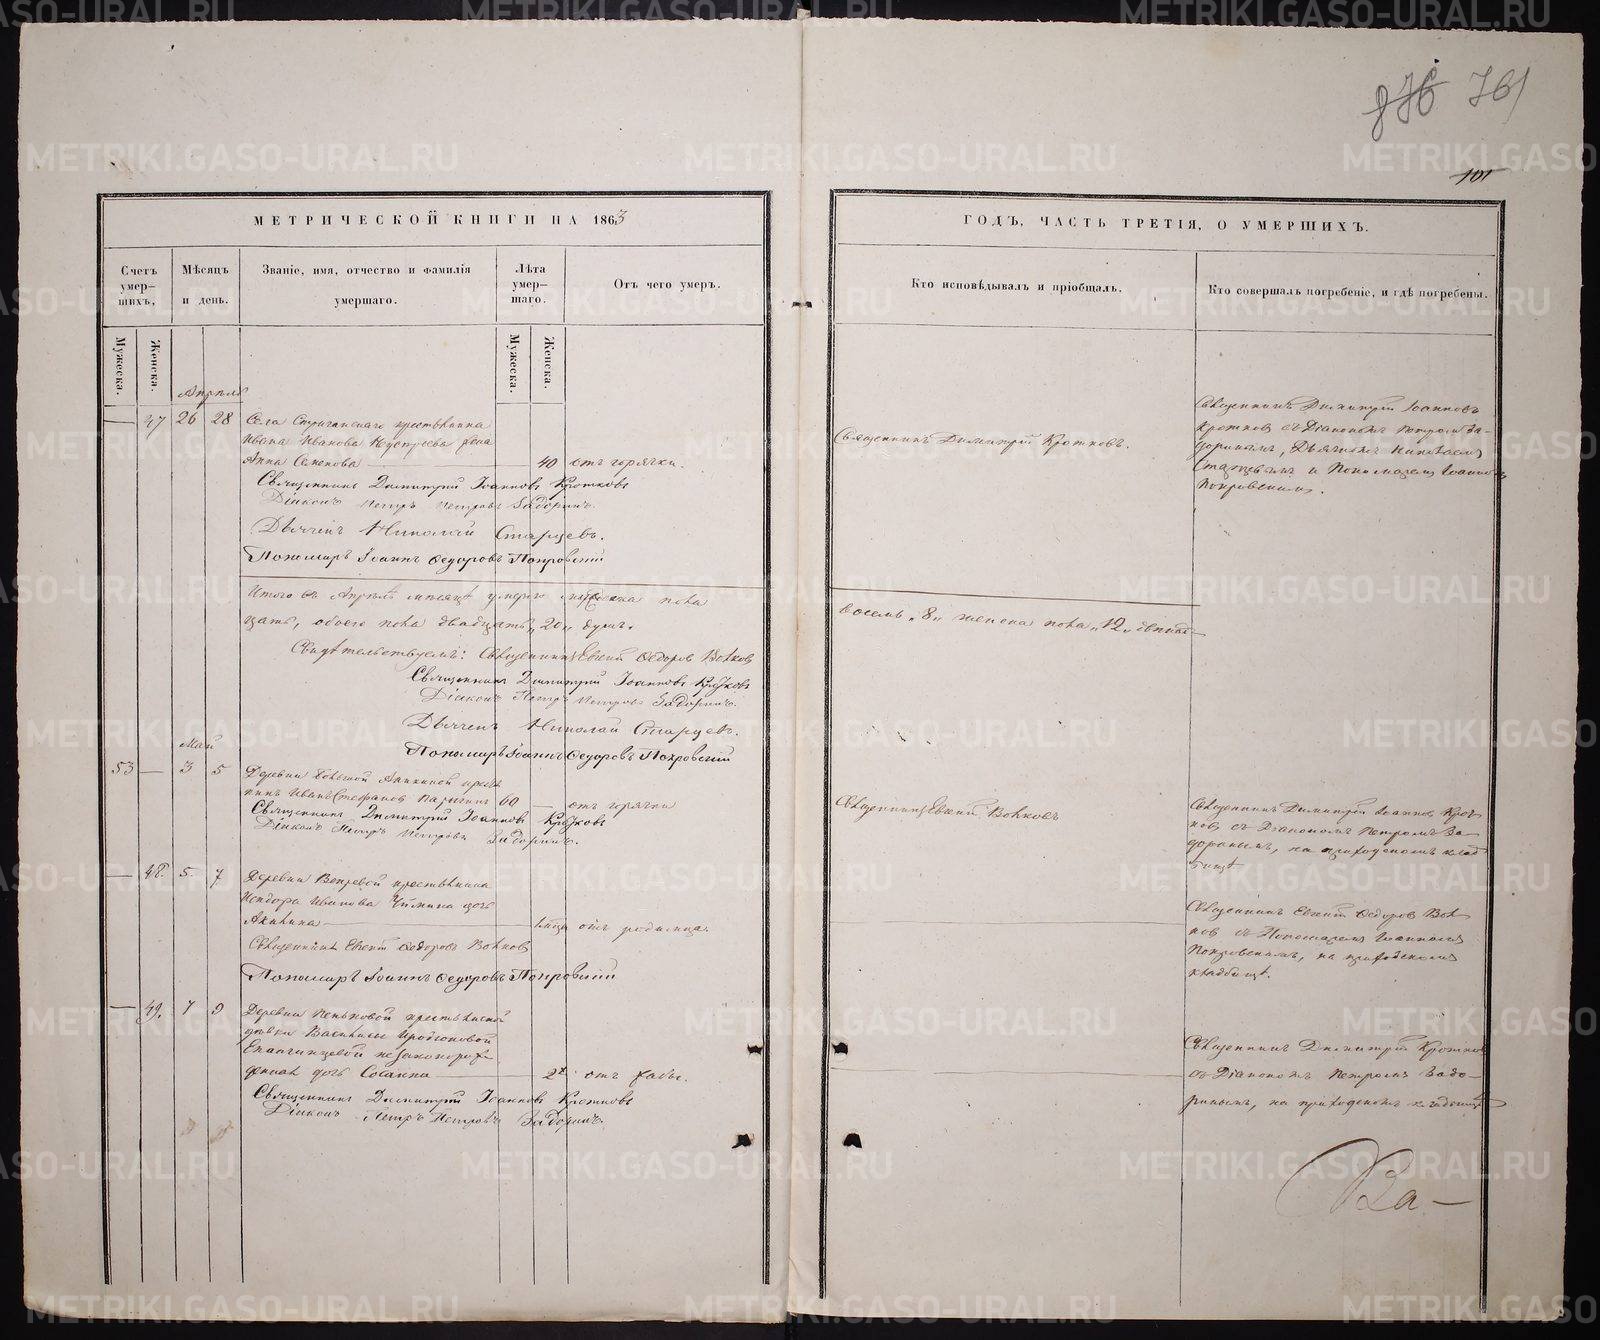 876 761
101
МЕТРИЧЕСКОЙ КНИГИ НА 1863
ГОДЪ, ЧАСТЬ ТРЕТІЯ, О УМЕРШИХЪ.
Счетъ умер-шихъ,
Мѣсяцъ и день.
Званіе, имя, отчество и фамилія умершаго.
Лѣта умер-шаго.
Отъ чего умеръ.
Кто исповѣдывалъ и пріобщалъ.
Кто совершалъ погребеніе, и гдѣ погребены.
Мужеска.
Женска.
Мужеска.
Женска.
Апрѣль
47 26 28 Села Стриганскаго крестьянина
Ивана Иванова жена
Анна Семенова 40 отъ горячки.
Священникъ Димитрій Кротковъ.
Священникъ Димитрій Іоанновъ
Кротковъ съ Діакономъ Петромъ За-
доринымъ, Дьячкомъ Николаемъ
Старцевымъ и Пономаремъ Іоанномъ
Покровскимъ.
Священникъ Димитрій Іоанновъ Кротковъ
Діаконъ Петръ Петровъ Задоринъ.
Дьячекъ Николай Старцевъ.
Пономарь Іоаннъ Ѳедоровъ Покровскій
Итого въ Апрѣлѣ мѣсяцѣ умерло мужеска пола
восемь „8„ женска пола „12„ двѣнад-
цать, обоего пола двадцать „20„ душъ.
Свидѣтельствуемъ: Священникъ Евгеній Ѳедоров Волков
Священникъ Димитрій Іоанновъ Кротковъ
Діаконъ Петръ Петровъ Задоринъ.
Дьячекъ Николай Старцевъ.
Пономарь Іоаннъ Ѳедоровъ Покровскій
Май
53 — 3 5 Деревни Большой Аникиной крестья
нинъ Иванъ Стефановъ 60 — отъ горячки
Священникъ Евгеній Волковъ
Священникъ Димитрій Іоанновъ Крот-
ковъ съ Діакономъ Петромъ За-
доринымъ, на приходскомъ клад-
бищѣ
Священникъ Димитрій Іоанновъ Кротковъ
Діаконъ Петръ Петровъ Задоринъ.
— 48. 5. 7 Деревни Вепревой крестьянина
Исидора Иванова дочь
Акилина отъ родимца.
Священникъ Евгеній Ѳедоров Вол-
ков съ Пономаремъ Іоанномъ
Покровскимъ, на приходскомъ
кладбищѣ.
Священникъ Евгеній Ѳедоровъ Волков
Пономарь Іоаннъ Ѳедоровъ Покровскій
— 49. 7 9 Деревни Пеньковой крестьянской
дѣвки Василисы Иродіоновой
Епанчинцевой незаконорож-
денная дочь 2 отъ жабы.
Священникъ Димитрій Кротков
съ Діакономъ Петромъ Задо-
ринымъ, на приходскомъ кладбищѣ
Священникъ Димитрій Іоанновъ Кротковъ
Діаконъ Петръ Петровъ Задоринъ.
Ва-
METRIKI.GASO-URAL.RU